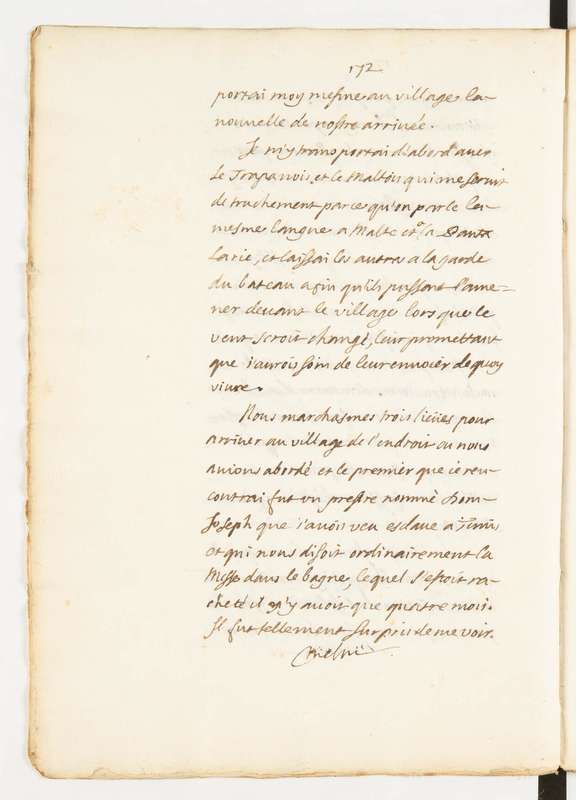 172
portai moy mesme au village la
nouvelle de nostre arriuée.
Je m'y transportai d'abord auec
le Trapanois, et le Maltois qui me seruit
de truchement parce qu'on parle la
mesme langue a Malte et a la Panta
larie, et laissai les autres a la garde
du bateau afin qu'ils pussent l'ame=
ner deuant le village lors que le
vent seroit changé, leur promettant
que i'aurois soin de leur enuoier de quoy
viure.
Nous marchasmes trois lieües pour
arriuer au village de l'endroit ou nous
auions abordé et le premier que ie ren
contrai fut vn prestre nommé Dom
Joseph que i'auois veu esclaue a Tunis
et qui nous disoit ordinairement la
Messe dans le bagne, lequel s'estoit ra
cheté il n'y auoit que quatre mois.
Il fut tellement surpris de me voir.